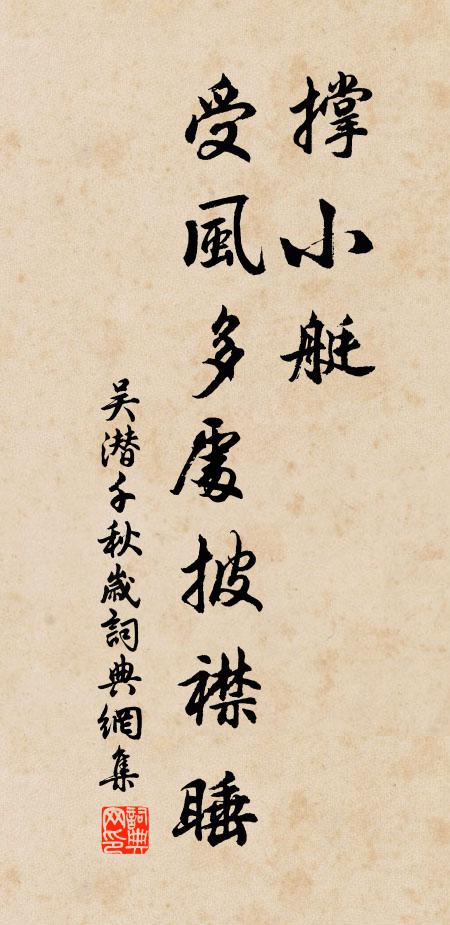 撑小艇
受風多處披襟睡
吳潛千秋歲詞典網集
詞典网印